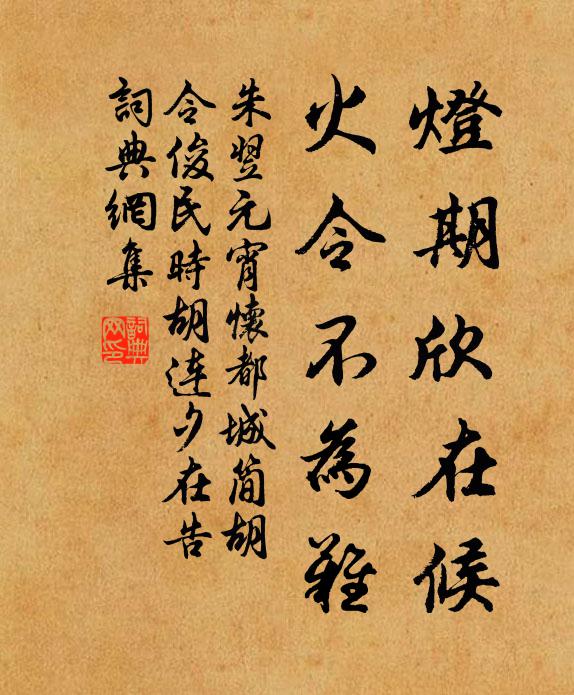 燈期欣在候
火令不為難
朱翌元宵懷都城簡胡
令俊民時胡連夕在告
詞典網集
詞典網印